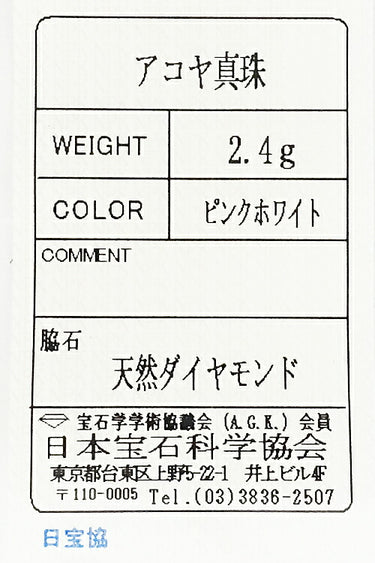 アコヤ真珠
WEIGHT 2.4g
COLOR ピンクホワイト
COMMENT
脇石
天然ダイヤモンド
宝石学学術協議会 (A.G.K.) 会員
日本宝石科学協会
東京都台東区上野5-22-1 井上ビル4F
〒110-0005 Tel.(03)3836-2507
日宝協